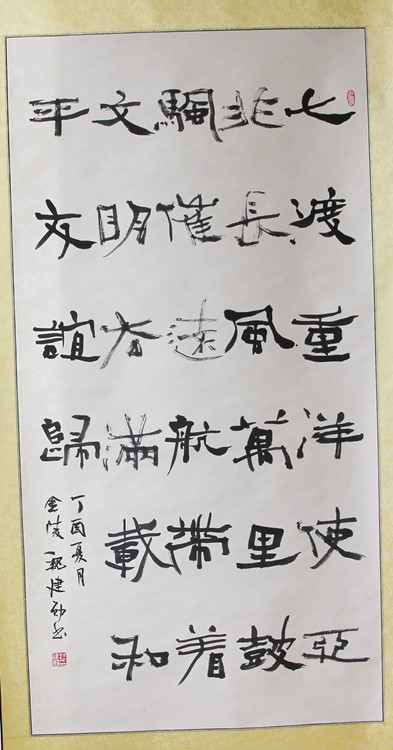 七渡重洋使亞
非長風萬里鼓
颿催遠航帶着
文明去滿載和
平友誼歸
丁酉夏月
金陵